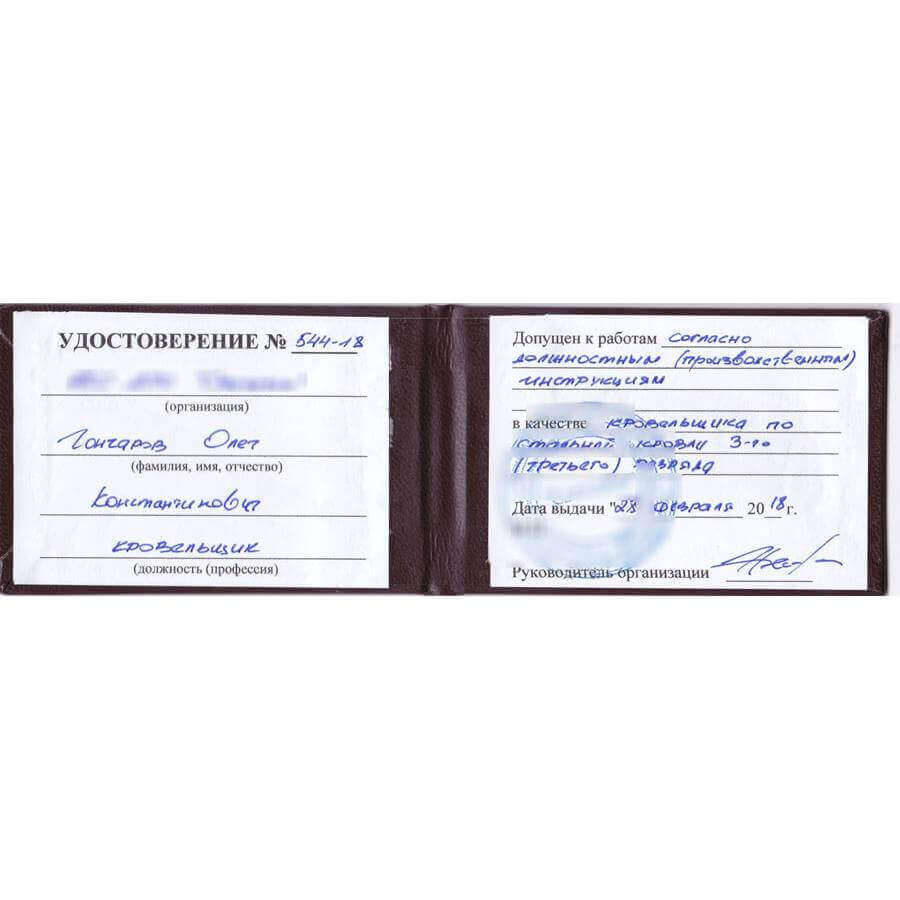 УДОСТОВЕРЕНИЕ № 544-18
(организация)
Гончаров Олег
(фамилия, имя, отчество)
Константинович
кровельщик
(должность (профессия)
Допущен к работам согласно
должностным (производственным)
инструкциям
в качестве кровельщика по
стальной кровли 3-го
(третьего) разряда
Дата выдачи "28 февраля 2018 г.
Руководитель организации